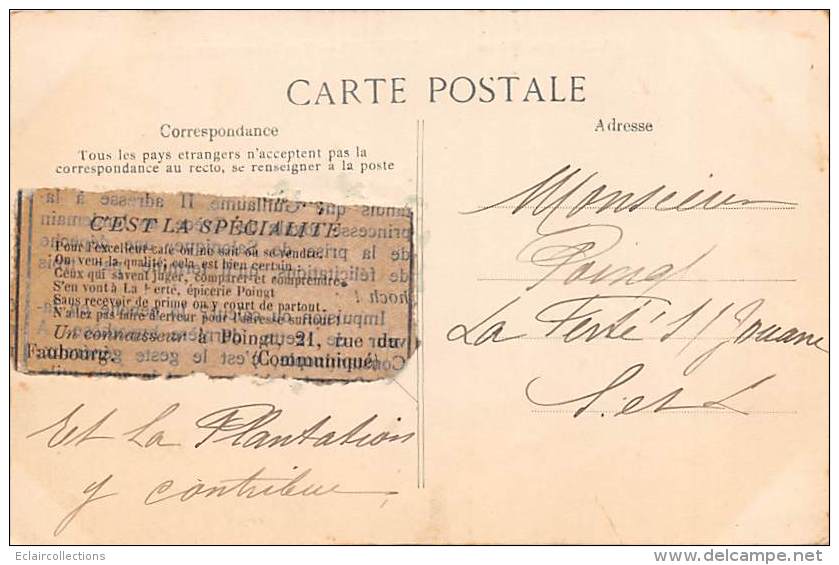 CARTE POSTALE
Correspondance
Tous les pays etrangers n'acceptent pas la
correspondance au recto, se renseigner à la poste
C'EST LA SPÉCIALITÉ
Pour l'excellent café où ne sait où se vendre.
On vent la qualité; cela est bien certain
Ceux qui savent juger, comparer et comprendre.
S'en vont à La Ferté, épicerie Poingt
Sans recevoir de prime on y court de partout.
N'allez pas faire d'erreur pour l'adresse surtout
Un connaisseur à Poingt 21, rue du
Faubourg. (Communiqué)
Et La Plantation
y contribue
Adresse
Monsieur
Poingt
La Ferté S/ Jouarre
S. et
Eclaircollections
delcampe.net